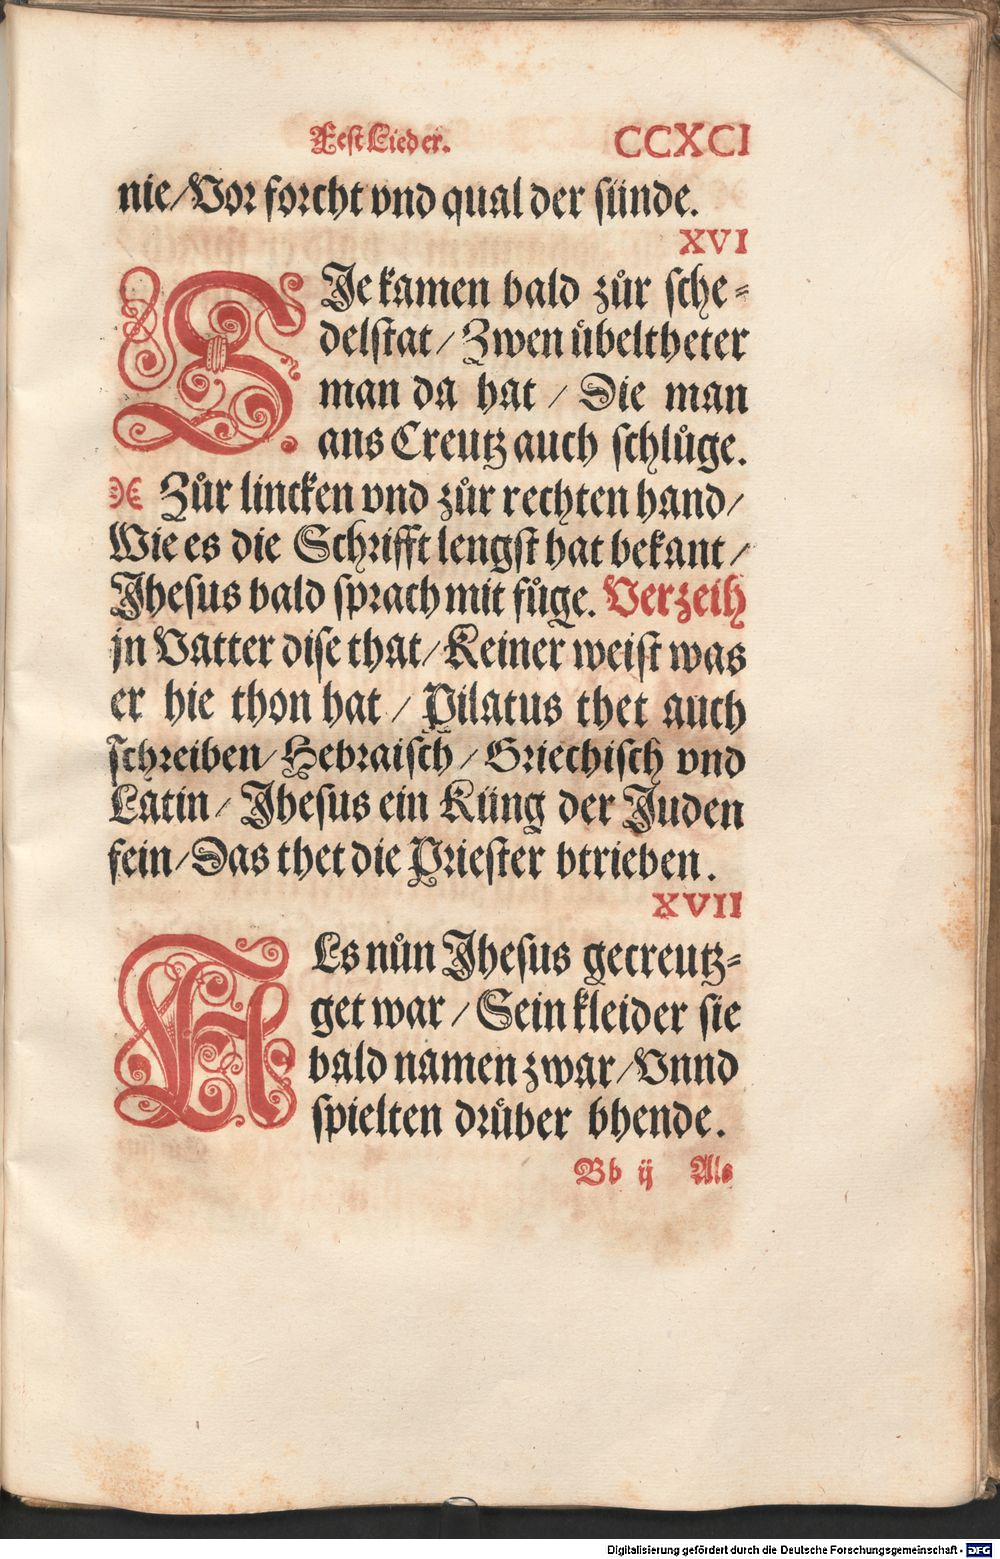 Fest Lieder. CCXCI
nie/ Vor forcht vnd qual der sünde.
XVI
SJe kamen bald zůr sche-
delstat/ Zwen übeltheter
man da hat / Die man
ans Creutz auch schlůge.
Zůr lincken vnd zůr rechten hand/
Wie es die Schrifft lengst hat bekant/
Jhesus bald sprach mit fůge. Verzeih
jn Vatter dise that/ Keiner weist was
er hie thon hat / Pilatus thet auch
schreiben/ Hebraisch/ Griechisch vnd
Latin/ Jhesus ein Küng der Juden
sein/ Das thet die Priester btrieben.
XVII
ALs nůn Jhesus gecreutz-
get war/ Sein kleider sie
bald namen zwar/ Vnnd
spielten drüber bhende.
Bb ij Als
Digitalisierung gefördert durch die Deutsche Forschungsgemeinschaft - DFG